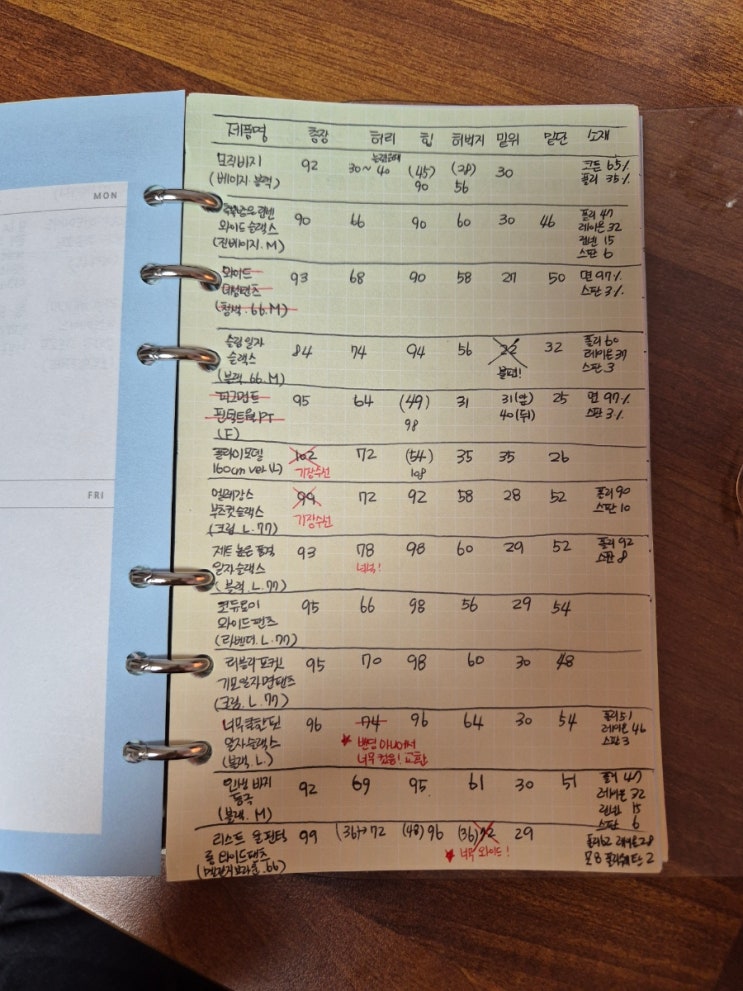 MON
FRI
제품명 총장 허리 힙 허벅지 밑위 밑단 소재
모직바지 92 30~40 (45) (28) 30 코튼 65%
(베이지 블랙) 90 56 폴리 35%
90 66 90 60 30 46 폴리 47
와이드 슬랙스 레이온 32
(진베이지.M) 린넨 15
스판 6
와이드 93 68 90 58 27 50 면 97%
데님팬츠 스판 3%
(청색.66.M)
슬림일자 84 74 94 56 22 32 폴리 60
슬랙스 불편! 레이온 37
(블랙.66.M) 스판 3
피그먼트 95 64 (49) 31 31(앞) 25 면 97%
핀턱 PT 98 40(뒤) 스판 3%
(F)
102 72 (54) 35 35 26
160cm ver. 기장수선 108
엘레강스 99 72 92 58 28 52 폴리 90
부츠컷슬랙스 기장수선 스판 10
(크림.L.77)
제트 높은 품격 93 78 98 60 29 52 폴리 92
일자슬랙스 넉넉! 스판 8
(블랙.L.77)
코듀로이 95 66 98 56 29 54
와이드팬츠
(라벤더.L.77)
포켓 95 70 98 60 30 48
기모일자면팬츠
(크림.L.77)
96 74 96 64 30 54 폴리 51
일자슬랙스 ★ 밴딩 아니어서 레이온 46
(블랙.L.) 너무 컸음! 교환 스판 3
인생 바지 92 69 95 61 30 51 폴리 47
등극 레이온 32
(블랙.M) 린넨 15
스판 6
리스트 울 핀턱 99 (36)→72 (48) 96 (36) 72 29 폴리62 레이온28
롱 와이드팬츠 ★ 너무 와이드! 모8 폴리우레탄 2